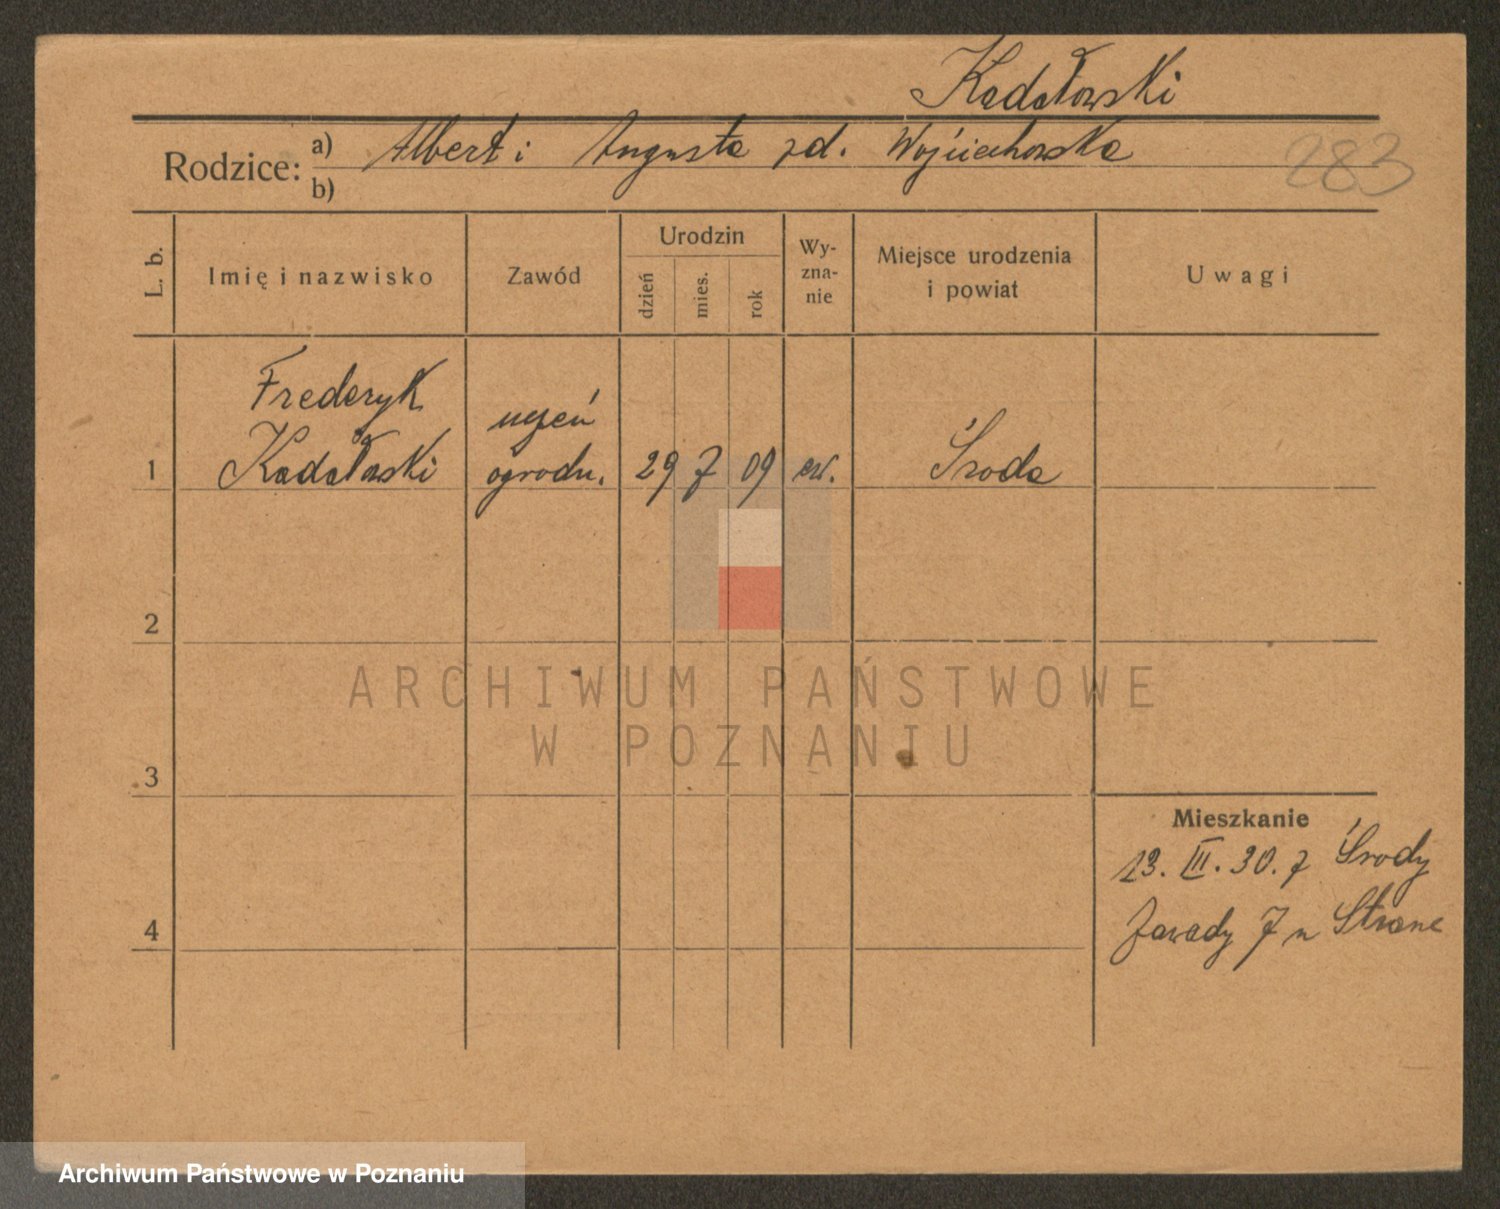 Kadatowski
Rodzice: a) Albert i Augusta zd. Wojciechowska
b)
283
L. b.
Imię i nazwisko
Zawód
Urodzin
dzień
mies.
rok
Wy-
zna-
nie
Miejsce urodzenia
i powiat
Uwagi
1
Frederyk
Kadatowski
uczeń
ogrodn.
29 7 09
ew.
Środa
2
3
4
Mieszkanie
13. III. 30. z Środy
Zawady 7 n Strane
ARCHIWUM PAŃSTWOWE
W POZNANIU
Archiwum Państwowe w Poznaniu